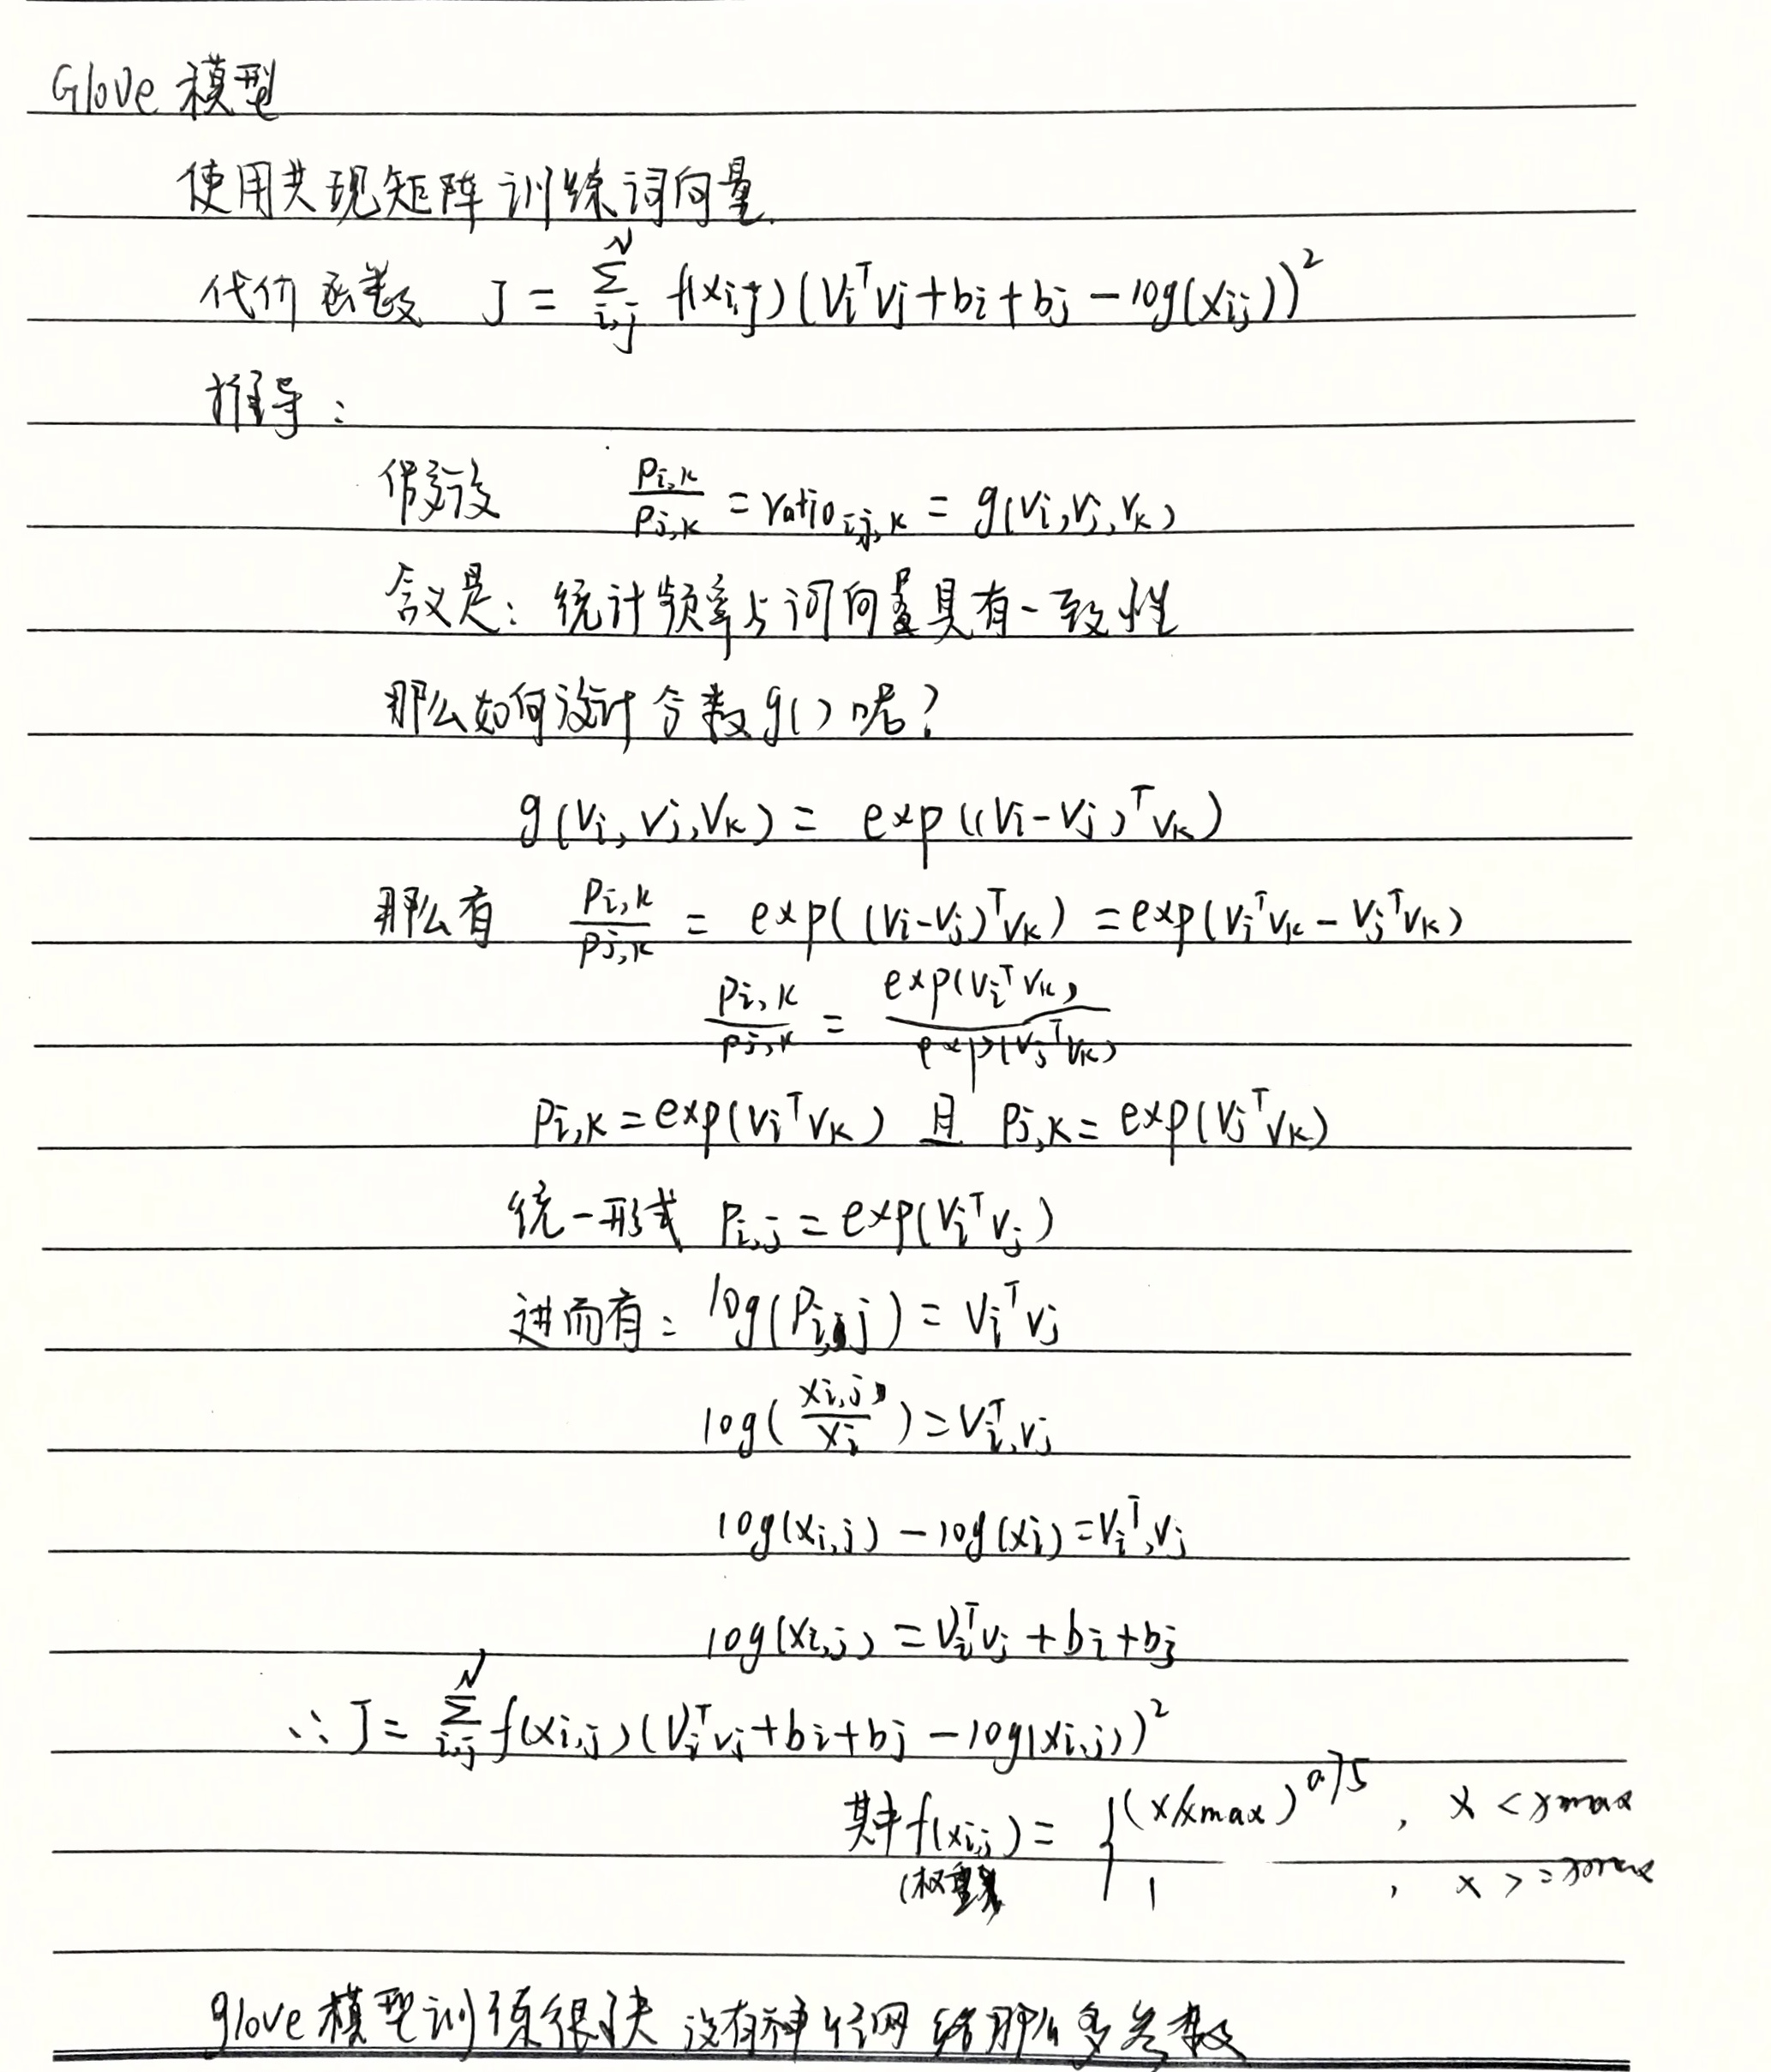 Glove 模型
使用共现矩阵训练词向量.
代价函数 J = \sum_{i,j}^{N} f(x_{i,j}) (v_i^T v_j + b_i + b_j - log(x_{ij}))^2
推导：
假设 \frac{P_{i,k}}{P_{j,k}} = ratio_{i,j,k} = g(v_i, v_j, v_k)
含义是：统计频率与词向量具有一致性
那么如何设计函数 g() 呢？
g(v_i, v_j, v_k) = exp((v_i - v_j)^T v_k)
那么有 \frac{P_{i,k}}{P_{j,k}} = exp((v_i - v_j)^T v_k) = exp(v_i^T v_k - v_j^T v_k)
\frac{P_{i,k}}{P_{j,k}} = \frac{exp(v_i^T v_k)}{exp(v_j^T v_k)}
P_{i,k} = exp(v_i^T v_k) 且 P_{j,k} = exp(v_j^T v_k)
统一形式 P_{i,j} = exp(v_i^T v_j)
进而有：log(P_{i,j}) = v_i^T v_j
log(\frac{x_{i,j}}{x_i}) = v_i^T, v_j
log(x_{i,j}) - log(x_i) = v_i^T, v_j
log(x_{i,j}) = v_i^T v_j + b_i + b_j
∴ J = \sum_{i,j}^{N} f(x_{i,j}) (v_i^T v_j + b_i + b_j - log(x_{i,j}))^2
其中 f(x_{i,j}) = { (x/xmax)^{0.75} , x < xmax
(权重 1 , x >= xmax
glove 模型训练很快 没有神经网络那么多参数